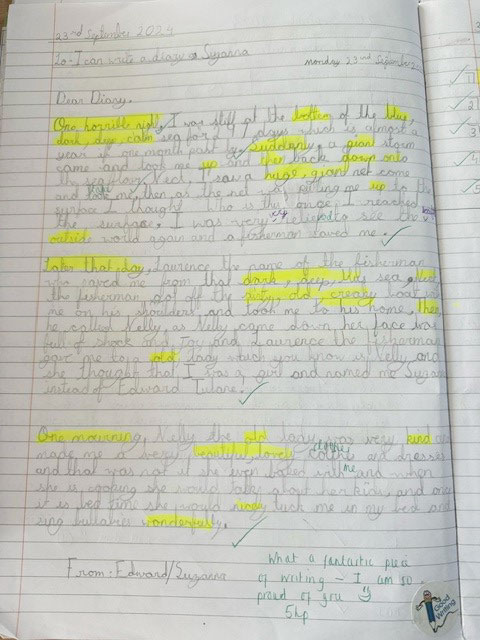 23rd September 2024
Lo-I can write a diary as Suzanna
Monday 23rd September
Dear Diary,
One horrible night, I was still at the bottom of the blue,
dark, deep, calm sea for 2 days which is almost a
year if one month past by. Suddenly, a giant storm
came and took me up and then back down onto
the sea floor. Next, I saw a huge, giant net come
and take me, then, as the net was pulling me up to the
surface I thought who is this once I reached
the surface. I was very relieved to see the
very
outside world again and a fisherman saved me.
Later that day, Laurence the name of the fisherman
who saved me from that dark, deep, blue sea. Next
the fisherman got off the old, creaky boat
me on his shoulder, and took me to his home, then
he called Nelly, as Nelly came down her face was
full of shock and Joy and Laurence the fisherman
gave me to a old lady which you know is Nelly, and
she thought that I was a girl and named me Suzanna
instead of Edward Tulane.
One mourning, Nelly the old lady was very kind
made me a very beautiful lovely dresses
clothes
and that was not it she even baked with and when
me
she is cooking she would talk about her kids, and once
it is bed time she would nicely tuck me in my bed and
sing lullabies wonderfully.
From: Edward/Suzanna
What a fantastic piece
of writing - I am so
proud of you
5hp
Good
Writing